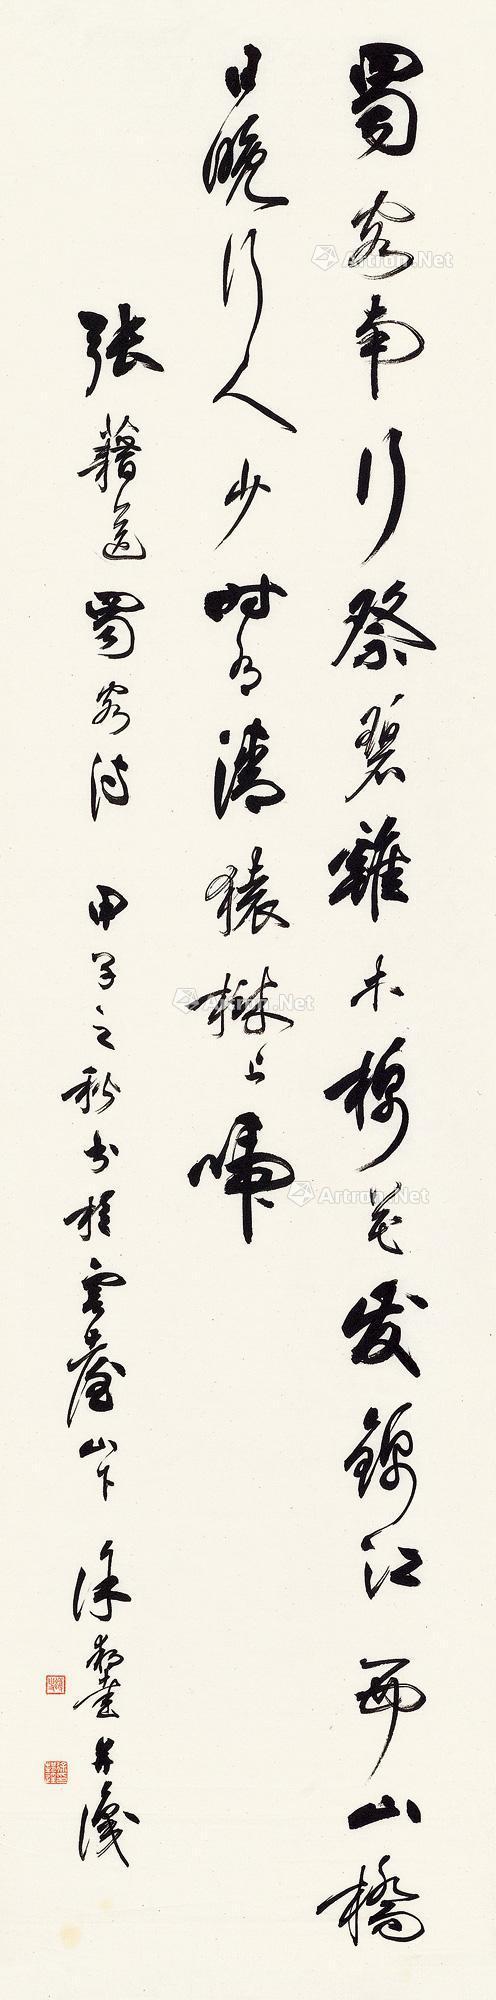 蜀客南行祭碧雞木棉花發錦江西山橋
日晚行人少時有清猿樹上啼
張籍送蜀客詩 甲子之秋書於雲臺山下 徐無聞并識
Artron.Net
Artron.Net
Artron.Net